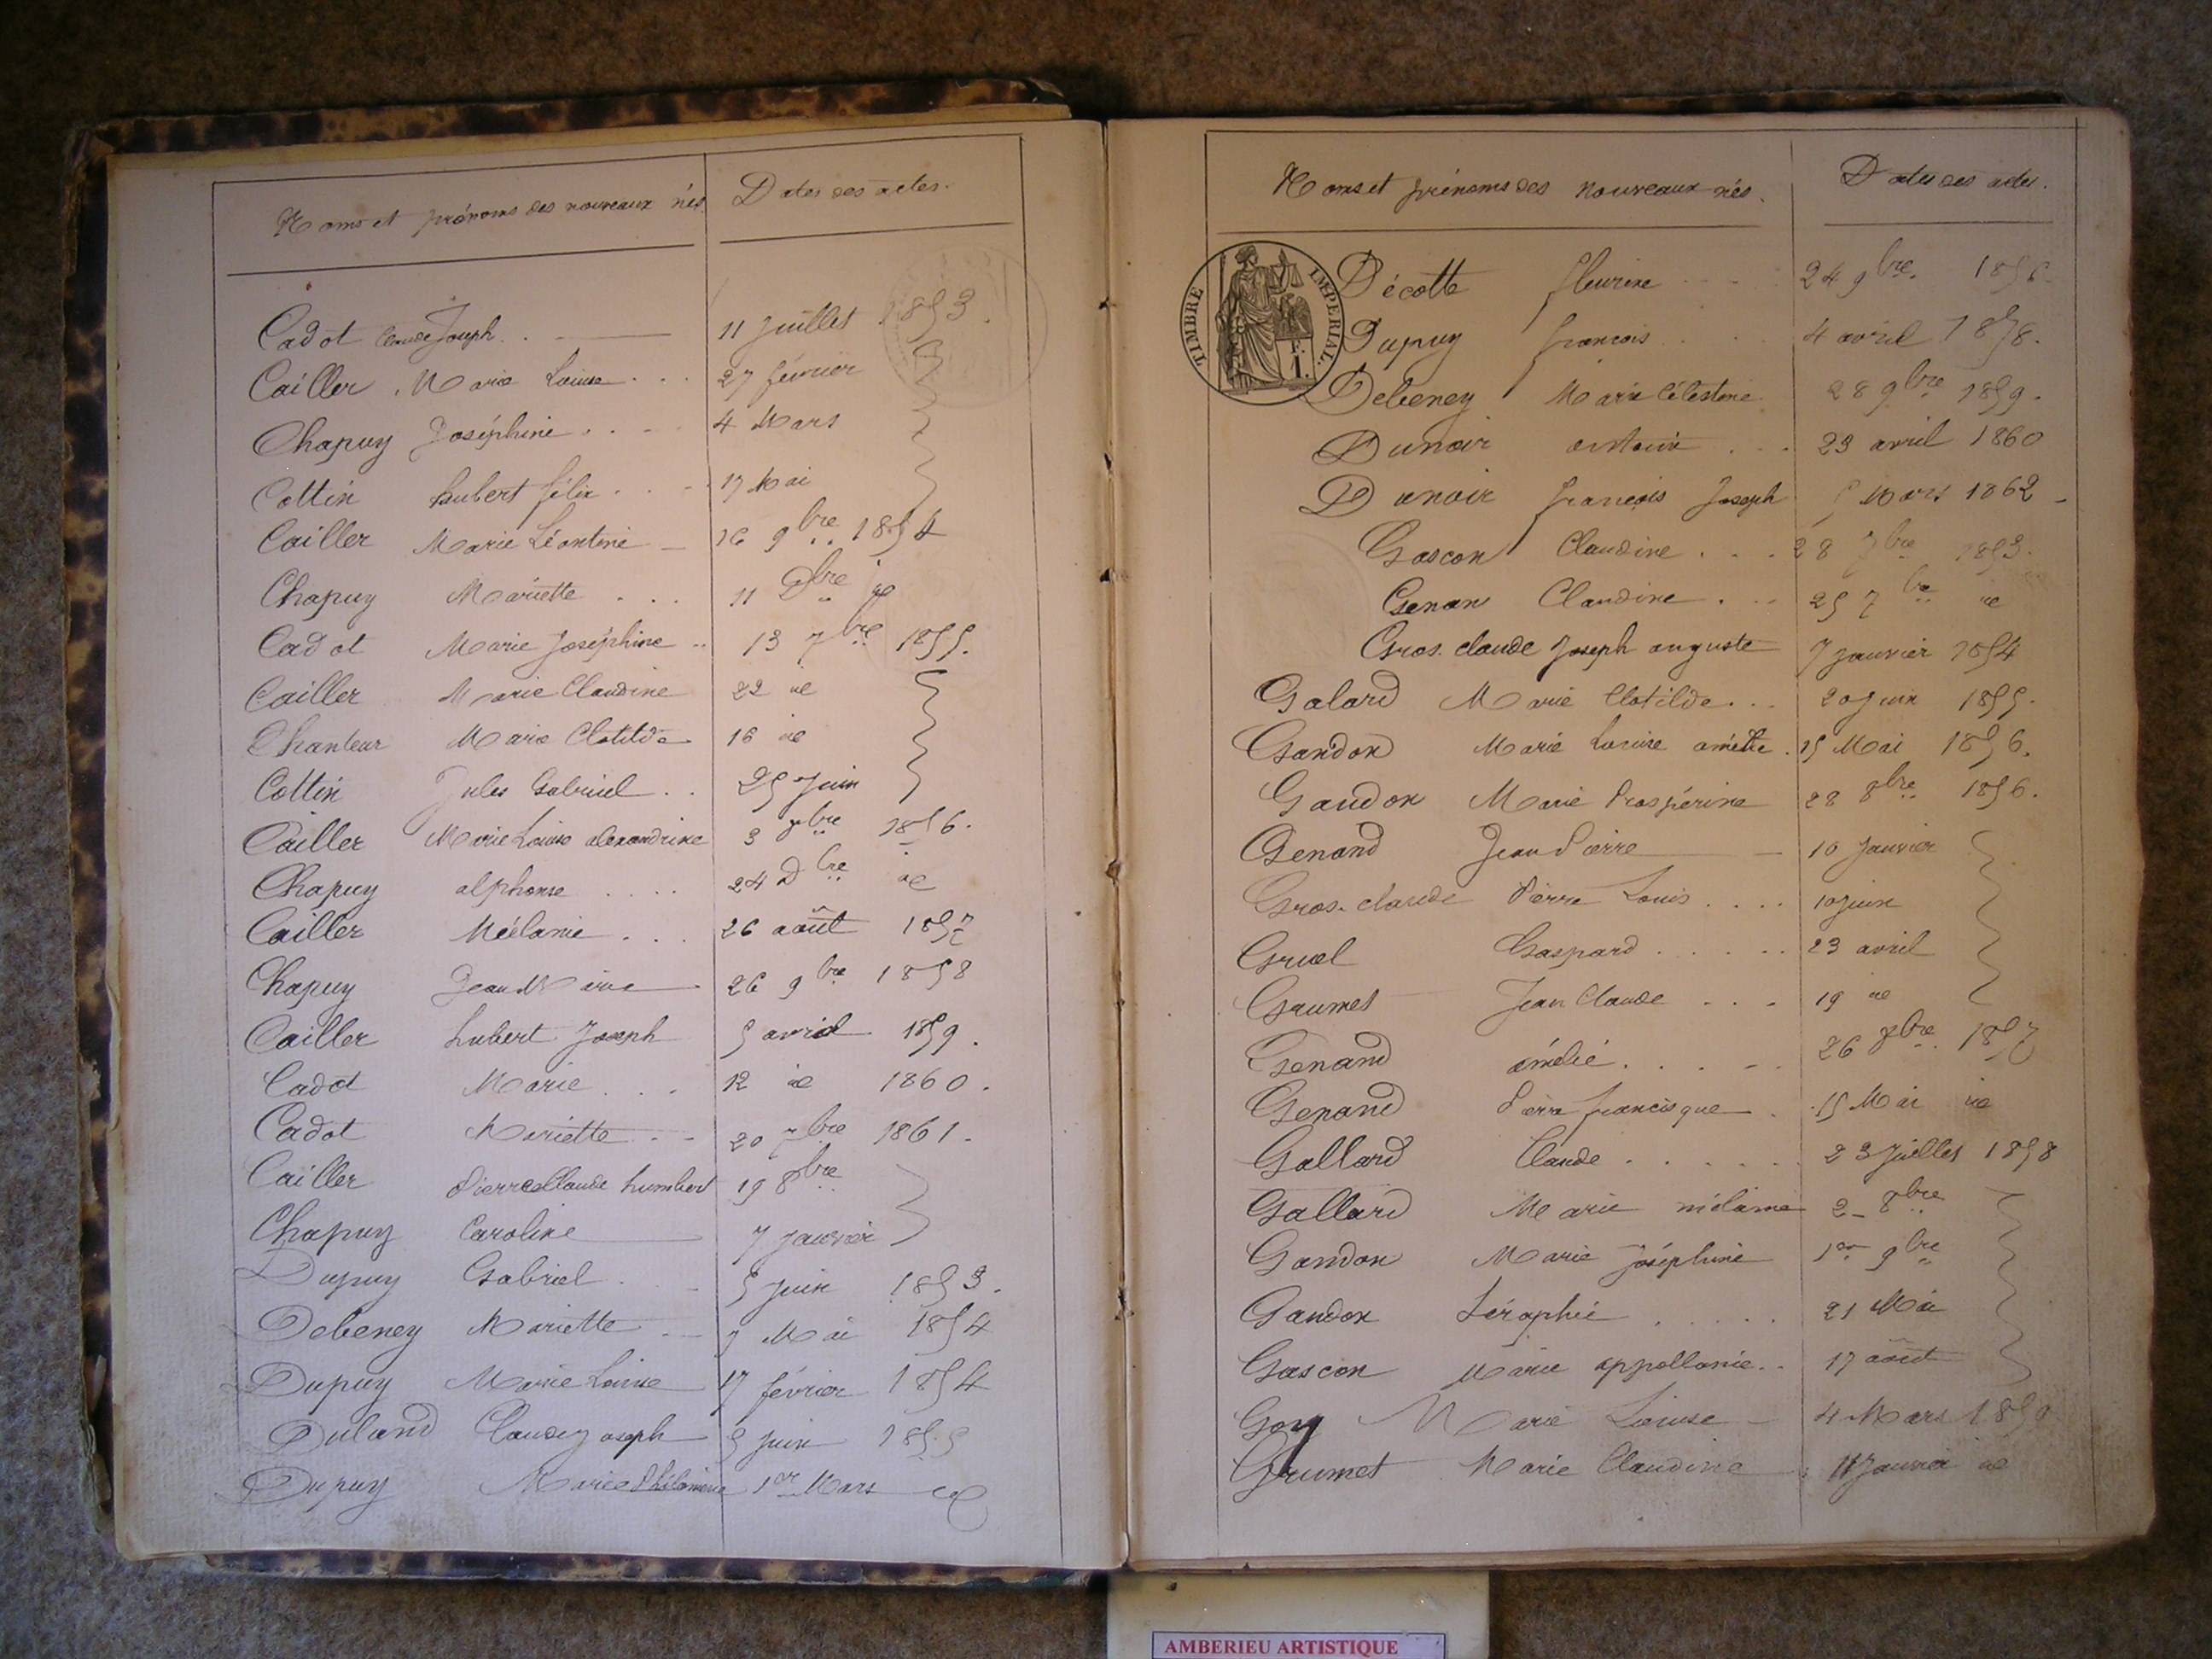 Noms et prénoms des nouveaux nés
Dates des actes.
Cadot Claude Joseph . . 11 Juillet 1853.
Cailler Marie Louise . . . 27 février
Chapuy Joséphine . . . 4 Mars
Cottin hubert félix . . . 17 Mai
Cailler Marie Léontine 16 9bre 1854
Chapuy Mariette . . . 11 Dbre id
Cadot Marie Joséphine .. 13 7bre 1855.
Cailler Marie Claudine 22 id
Chanteur Marie Clotilde 16 id
Cottin Jules Gabriel . . 25 Juin
Cailler Marie Louise alexandrine 3 7bre 1856.
Chapuy alphonse . . . . 24 Dbre id
Cailler Mélanie . . . 26 août 1857
Chapuy Jean Marie 26 9bre 1858
Cailler hubert Joseph 5 avril 1859.
Cadot Marie . . . 12 id 1860.
Cadot Mariette 20 7bre 1861.
Cailler Pierre Claude humbert 19 8bre
Chapuy Caroline 7 Janvier
Dupuy Gabriel 5 Juin 1853.
Debeney Mariette 7 Mai 1854
Dupuy Marie Louise 17 février 1854
Duland Claude Joseph 5 Juin 1855
Dupuy Marie Philomène 1er Mars id
Noms et prénoms des nouveaux nés.
Dates des actes.
TIMBRE IMPERIAL.
F. 1.
Décotte fleurine 24 9bre. 1856
Dupuy françois 4 avril 1858.
Debeney Marie Célestine 28 9bre 1859.
Dunoir antoine . . . 23 avril 1860
Dunoir françois Joseph 5 Mars 1862
Gascon Claudine . . . 28 7bre 1853.
Genan Claudine . . . 25 7bre id
Gros. claude Joseph auguste 7 Janvier 1854
Galard Marie Clotilde . . . 20 Juin 1855.
Gandon Marie Louise amélie . 15 Mai 1856.
Gaudon Marie Prospérine 28 8bre 1856.
Genand Jean Pierre 10 Janvier
Gros. claude Pierre Louis . . . . 10 Juin
Gruel Gaspard . . . . . 23 avril
Grumet Jean Claude . . . 19 id
Genand amélie . . . . 26 7bre. 1857
Genand Pierre francisque . 15 Mai id
Gallard Claude . . . . . . 23 Juillet 1858
Gallard Marie mélanie 2 8bre
Gandon Marie Joséphine 1er 9bre
Gandon Séraphie . . . . . 21 Mai
Gascon Marie appollonie . . 17 août
Goy Marie Louise 4 Mars 1859
Grumet Marie Claudine 11 Janvier id
AMBERIEU ARTISTIQUE